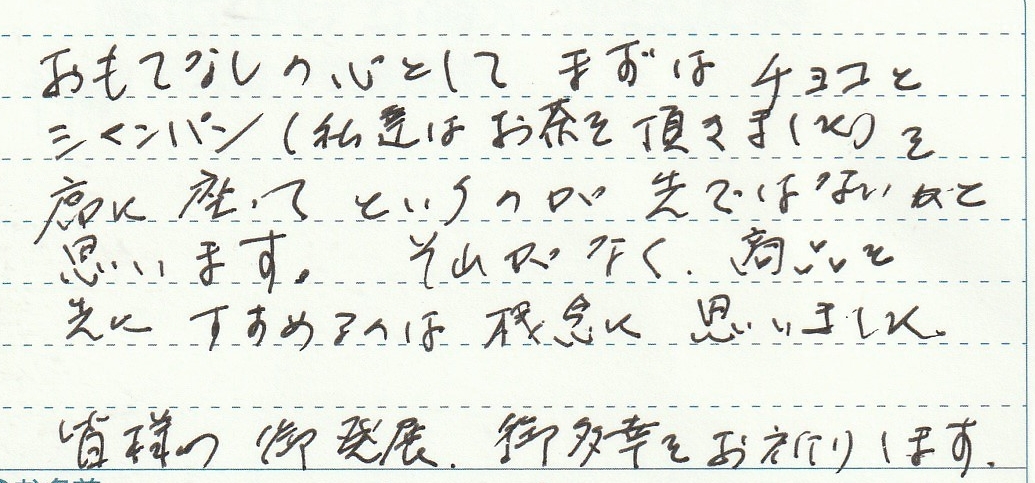 おもてなしの心として まずは チョコと
シャンパン(私達は お茶を 頂きました)を
席に 座って というのが 先ではないかと
思います。 それがなく、商品を
先に すすめるのは 残念に 思いました。
皆様の 御発展、御多幸を お祈りします。